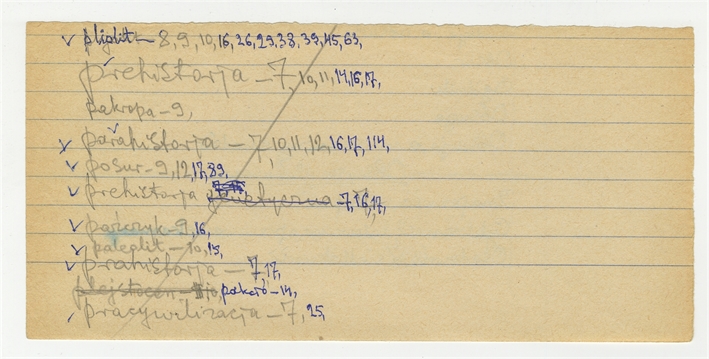 pliplit – 8, 9, 10, 16, 26, 29, 38, 39, 45, 63,
přehistorja – 7, 10, 11, 14, 16, 17,
pakropa – 9,
pařahistorja – 7, 10, 11, 12, 16, 17, 114,
posur – 9, 12, 17, 89,
prehistorja – 7, 16, 17,
parczyk – 9, 16,
paleolit – 10, 15,
prahistorja – 7, 17,
plejstocen – 10, pakcio – 14,
pracywilizacja – 7, 25,